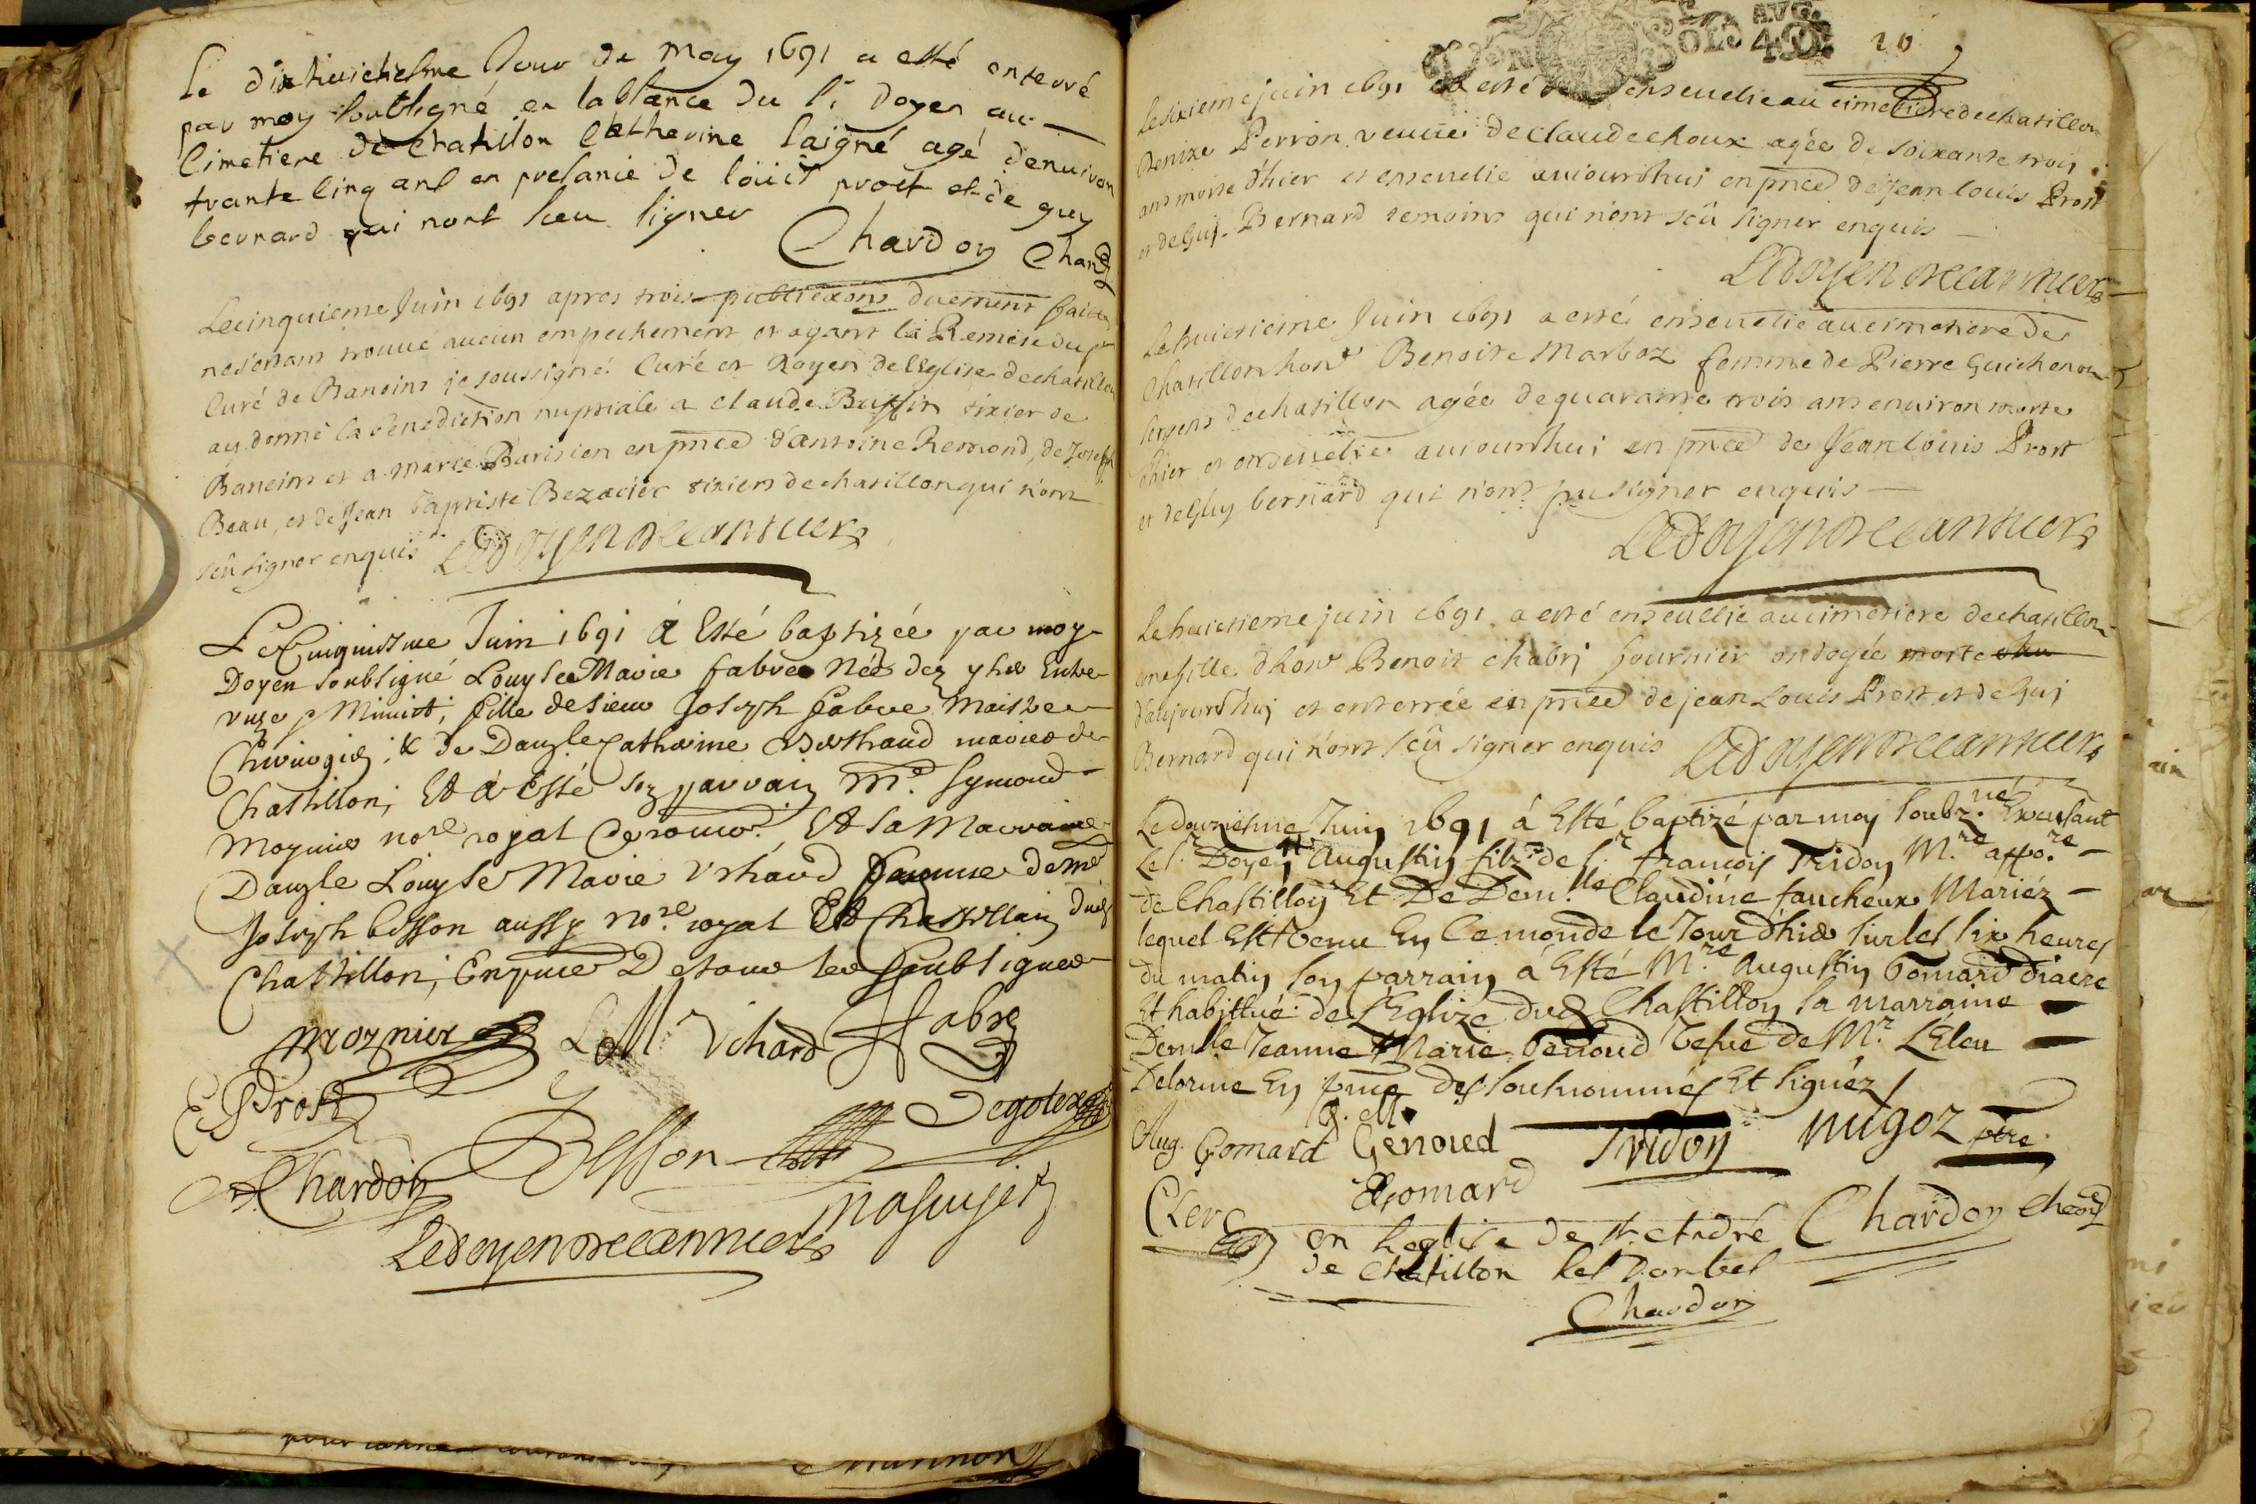 Le dixhuictiesme Jour de may 1691 a esté enterré
par moy soubsigné en labsance du Sr doyen au
Cimetiere de Chatillon Catherine laigné agé denuiron
trante cinq ans en presance de loüis prost et de guy
bernard qui nont sceu signer
Chardon
Le cinquieme Juin 1691 apres trois publicaons duement faictes
ne sestant trouue aucun empechement et ayant la Remise du Sr
Curé de Baneins je soussigné Curé et Doyen de l'Eglise de chatillon
ay donné la benediction nuptiale a claude Buffin tixier de
Baneins et a marie Parisien en pnce d'antoine Remond, de Joseph
Beau, et de Jean baptiste Bezacier tixiers de chatillon qui n'ont
sçû signer enquis Ledoyen
Le Cinquiesme Juin 1691 A Esté baptizée par moy
Doyen soubsigné Louyse Marie fabre Née dez yher Entre
vnze Minuict, fille de sieur Joseph fabre Maistre
Chirurgien, & de Dauzle Catherine Berthaud mariez de
Chastillon, Et a Esté son parrain Mr. Symond
Moynier nore royal Et Sa Marraine
Dauzle Louyse Marie Vchard femme de mr
Joseph besson aussy nore royal Et Chastellain dud
Chastillon, En pnce De tous les soubsignes
moznier LM Vchard Fabre
Prost Besson Degoteza
Chardon
Ledoyen
Le sixieme juin 1691 a esté enseuelie au cimetiere de chatillon
Denize Perron veuue de claude choux agée de soixante trois
ans morte d'hier et enseuelie auiourdhui en pnce de Jean louis Prost
et de Guy Bernard temoins qui n'ont sçû signer enquis
Ledoyen
Le huictieme Juin 1691 a esté enseuelie au cimetiere de
Chatillon hone Benoite Marboz femme de Pierre Guichenon
sergent de chatillon agée de quarante trois ans enuiron morte
dhier et enseuelie auiourdhui en pnce de Jean louis Prost
et de Guy bernard qui n'ont pu signer enquis
Ledoyen
Le huictieme juin 1691 a esté enseuelie au cimetiere de chatillon
une fille dhone Benoit chabri fournier ondoyée morte
d'aujourdhuj et enterrée en pnce de jean Louis Prost et de Guj
Bernard qui n'ont sçû signer enquis Ledoyen
Le douziesme Juin 1691 á Esté baptizé par moy soubz.né Excusant
Le Sr Doyen Augustin filz de Sr françois Tridon M.re appo.re
de Chastillon Et De Dem.lle Claudine faucheux Mariéz
lequel Est Venu En Ce monde le Jour d'hier sur les six heures
du matin son parrain á Esté M.re Augustin Gomard diacre
Et habittué de L'Eglize dud Chastillon la marraine
Demlle Jeanne Marie Genoud Vefue de Mr. L'Eleu
Delorme En pnce des sousnommés Et signéz
Aug. Gomard J. M. Genoud Tridon Migoz ptre
Gomard
Clerc en leglise de st André Chardon
de Chatillon les Dombes
Chardon